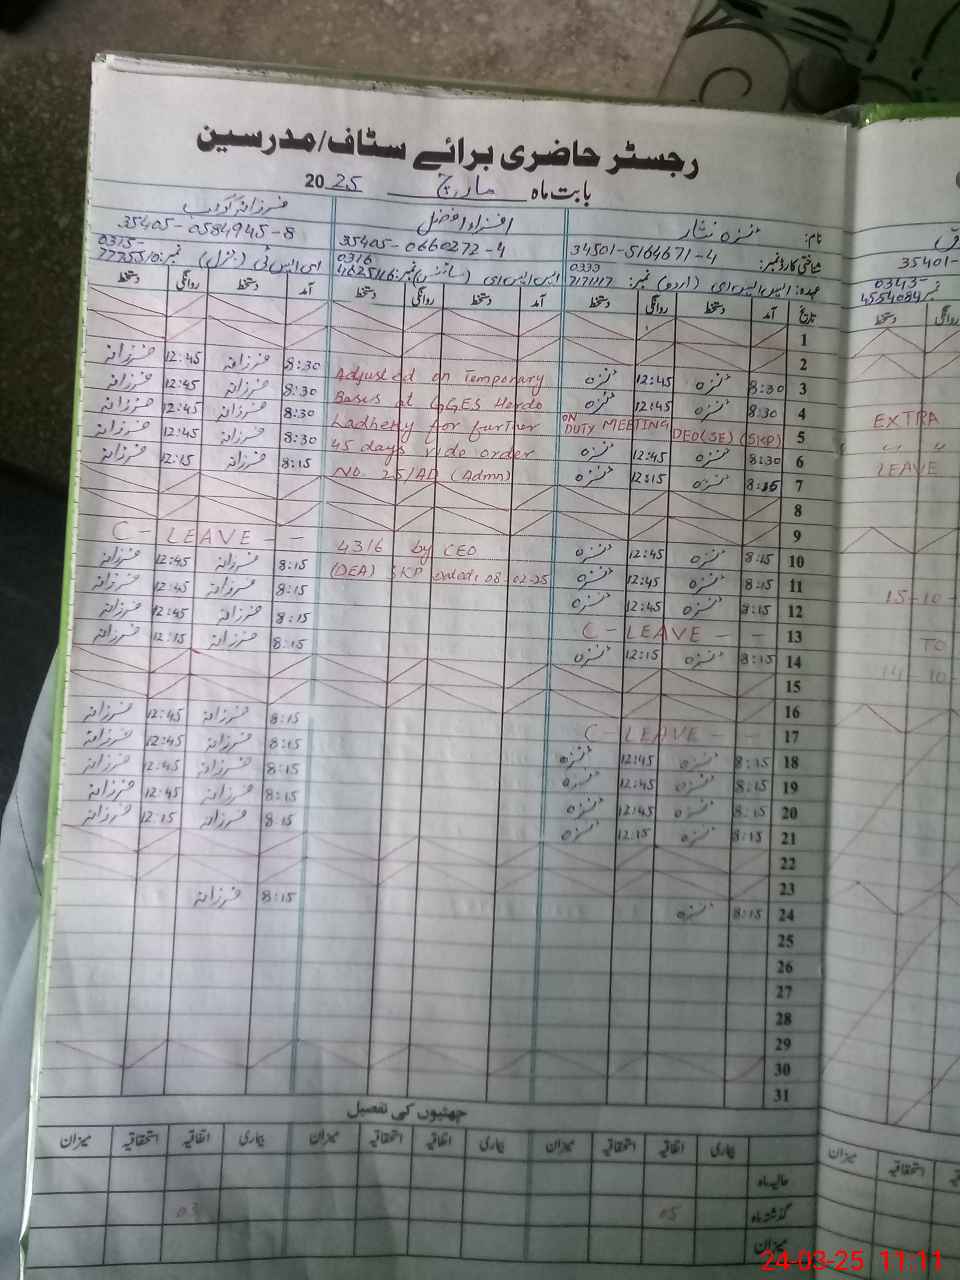 رجسٹر حاضری برائے سٹاف/مدرسین
بابت ماہ مارچ 2025
نام: منزہ نثار افزاء افضل فرزانہ کوکب
شناختی کارڈ نمبر: 34501-5164671-4 35405-0660272-4 35405-0584945-8 35401-
عہدہ: ایس ایس ای (اردو) نمبر: 0333 7171117 ایس ایس ای (سائنس) نمبر: 0316 4625116 ای ایس ٹی (جنرل) نمبر: 0315-7775510 نمبر 0343-4554084
تاریخ آمد دستخط روانگی دستخط آمد دستخط روانگی دستخط آمد دستخط روانگی دستخط روانگی دستخط
1
2
3 8:30 منزہ 12:45 منزہ Adjusted on Temporary 8:30 فرزانہ 12:45 فرزانہ
4 8:30 منزہ 12:45 منزہ Bases at GGES Hardo 8:30 فرزانہ 12:45 فرزانہ
5 ON DUTY MEETING DEO(SE) (SKP) Ladheky for further 8:30 فرزانہ 12:45 فرزانہ EXTRA
6 8:30 منزہ 12:45 منزہ 45 days vide order 8:30 فرزانہ 12:45 فرزانہ " "
7 8:15 منزہ 12:15 منزہ No 25/AD (Admn) 8:15 فرزانہ 12:15 فرزانہ LEAVE
8
9
10 8:15 منزہ 12:45 منزہ 4316 by CEO C - LEAVE - -
11 8:15 منزہ 12:45 منزہ (DEA) SKP dated: 08-02-25 8:15 فرزانہ 12:45 فرزانہ
12 8:15 منزہ 12:45 منزہ 8:15 فرزانہ 12:45 فرزانہ 15-10-
13 C - LEAVE - - 8:15 فرزانہ 12:45 فرزانہ
14 8:15 منزہ 12:15 منزہ 8:15 فرزانہ 12:15 فرزانہ TO
15 14-10-
16
17 C - LEAVE - - 8:15 فرزانہ 12:45 فرزانہ
18 8:15 منزہ 12:45 منزہ 8:15 فرزانہ 12:45 فرزانہ
19 8:15 منزہ 12:45 منزہ 8:15 فرزانہ 12:45 فرزانہ
20 8:15 منزہ 12:45 منزہ 8:15 فرزانہ 12:45 فرزانہ
21 8:15 منزہ 12:15 منزہ 8:15 فرزانہ 12:15 فرزانہ
22
23
24 8:15 منزہ 8:15 فرزانہ
25
26
27
28
29
30
31
چھٹیوں کی تفصیل
بیماری اتفاقیہ استحقاقیہ میزان بیماری اتفاقیہ استحقاقیہ میزان بیماری اتفاقیہ استحقاقیہ میزان استحقاقیہ میزان
حالیہ ماہ
گذشتہ ماہ 05 03
میزان
24-03-25 11:11